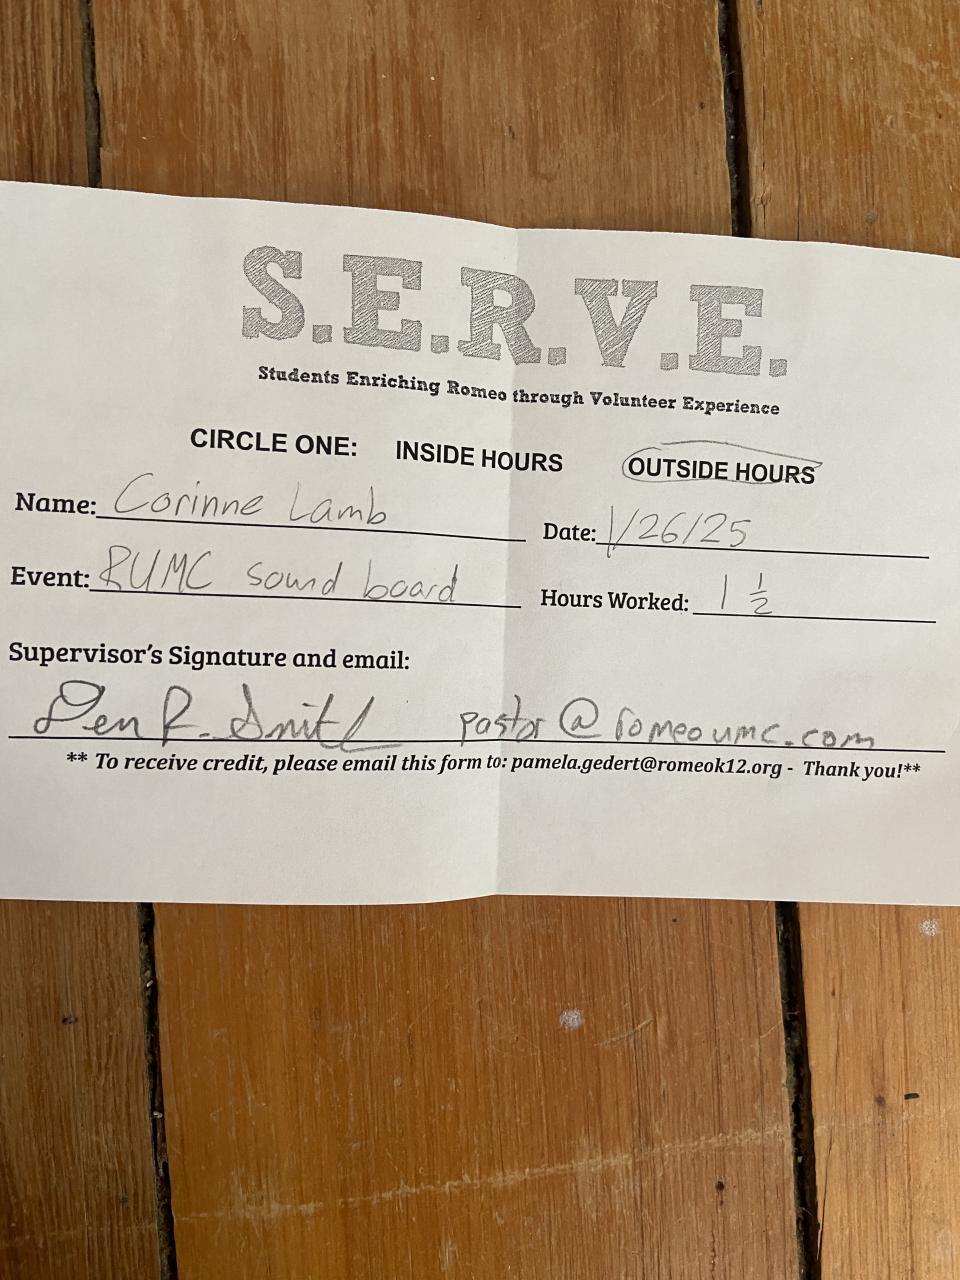 S.E.R.V.E.
Students Enriching Romeo through Volunteer Experience
CIRCLE ONE: INSIDE HOURS OUTSIDE HOURS
Name: Corinne Lamb Date: 1/26/25
Event: RUMC sound board Hours Worked: 1 1/2
Supervisor's Signature and email:
R. Smith pastor@romeoumc.com
** To receive credit, please email this form to: pamela.gedert@romeok12.org - Thank you!**